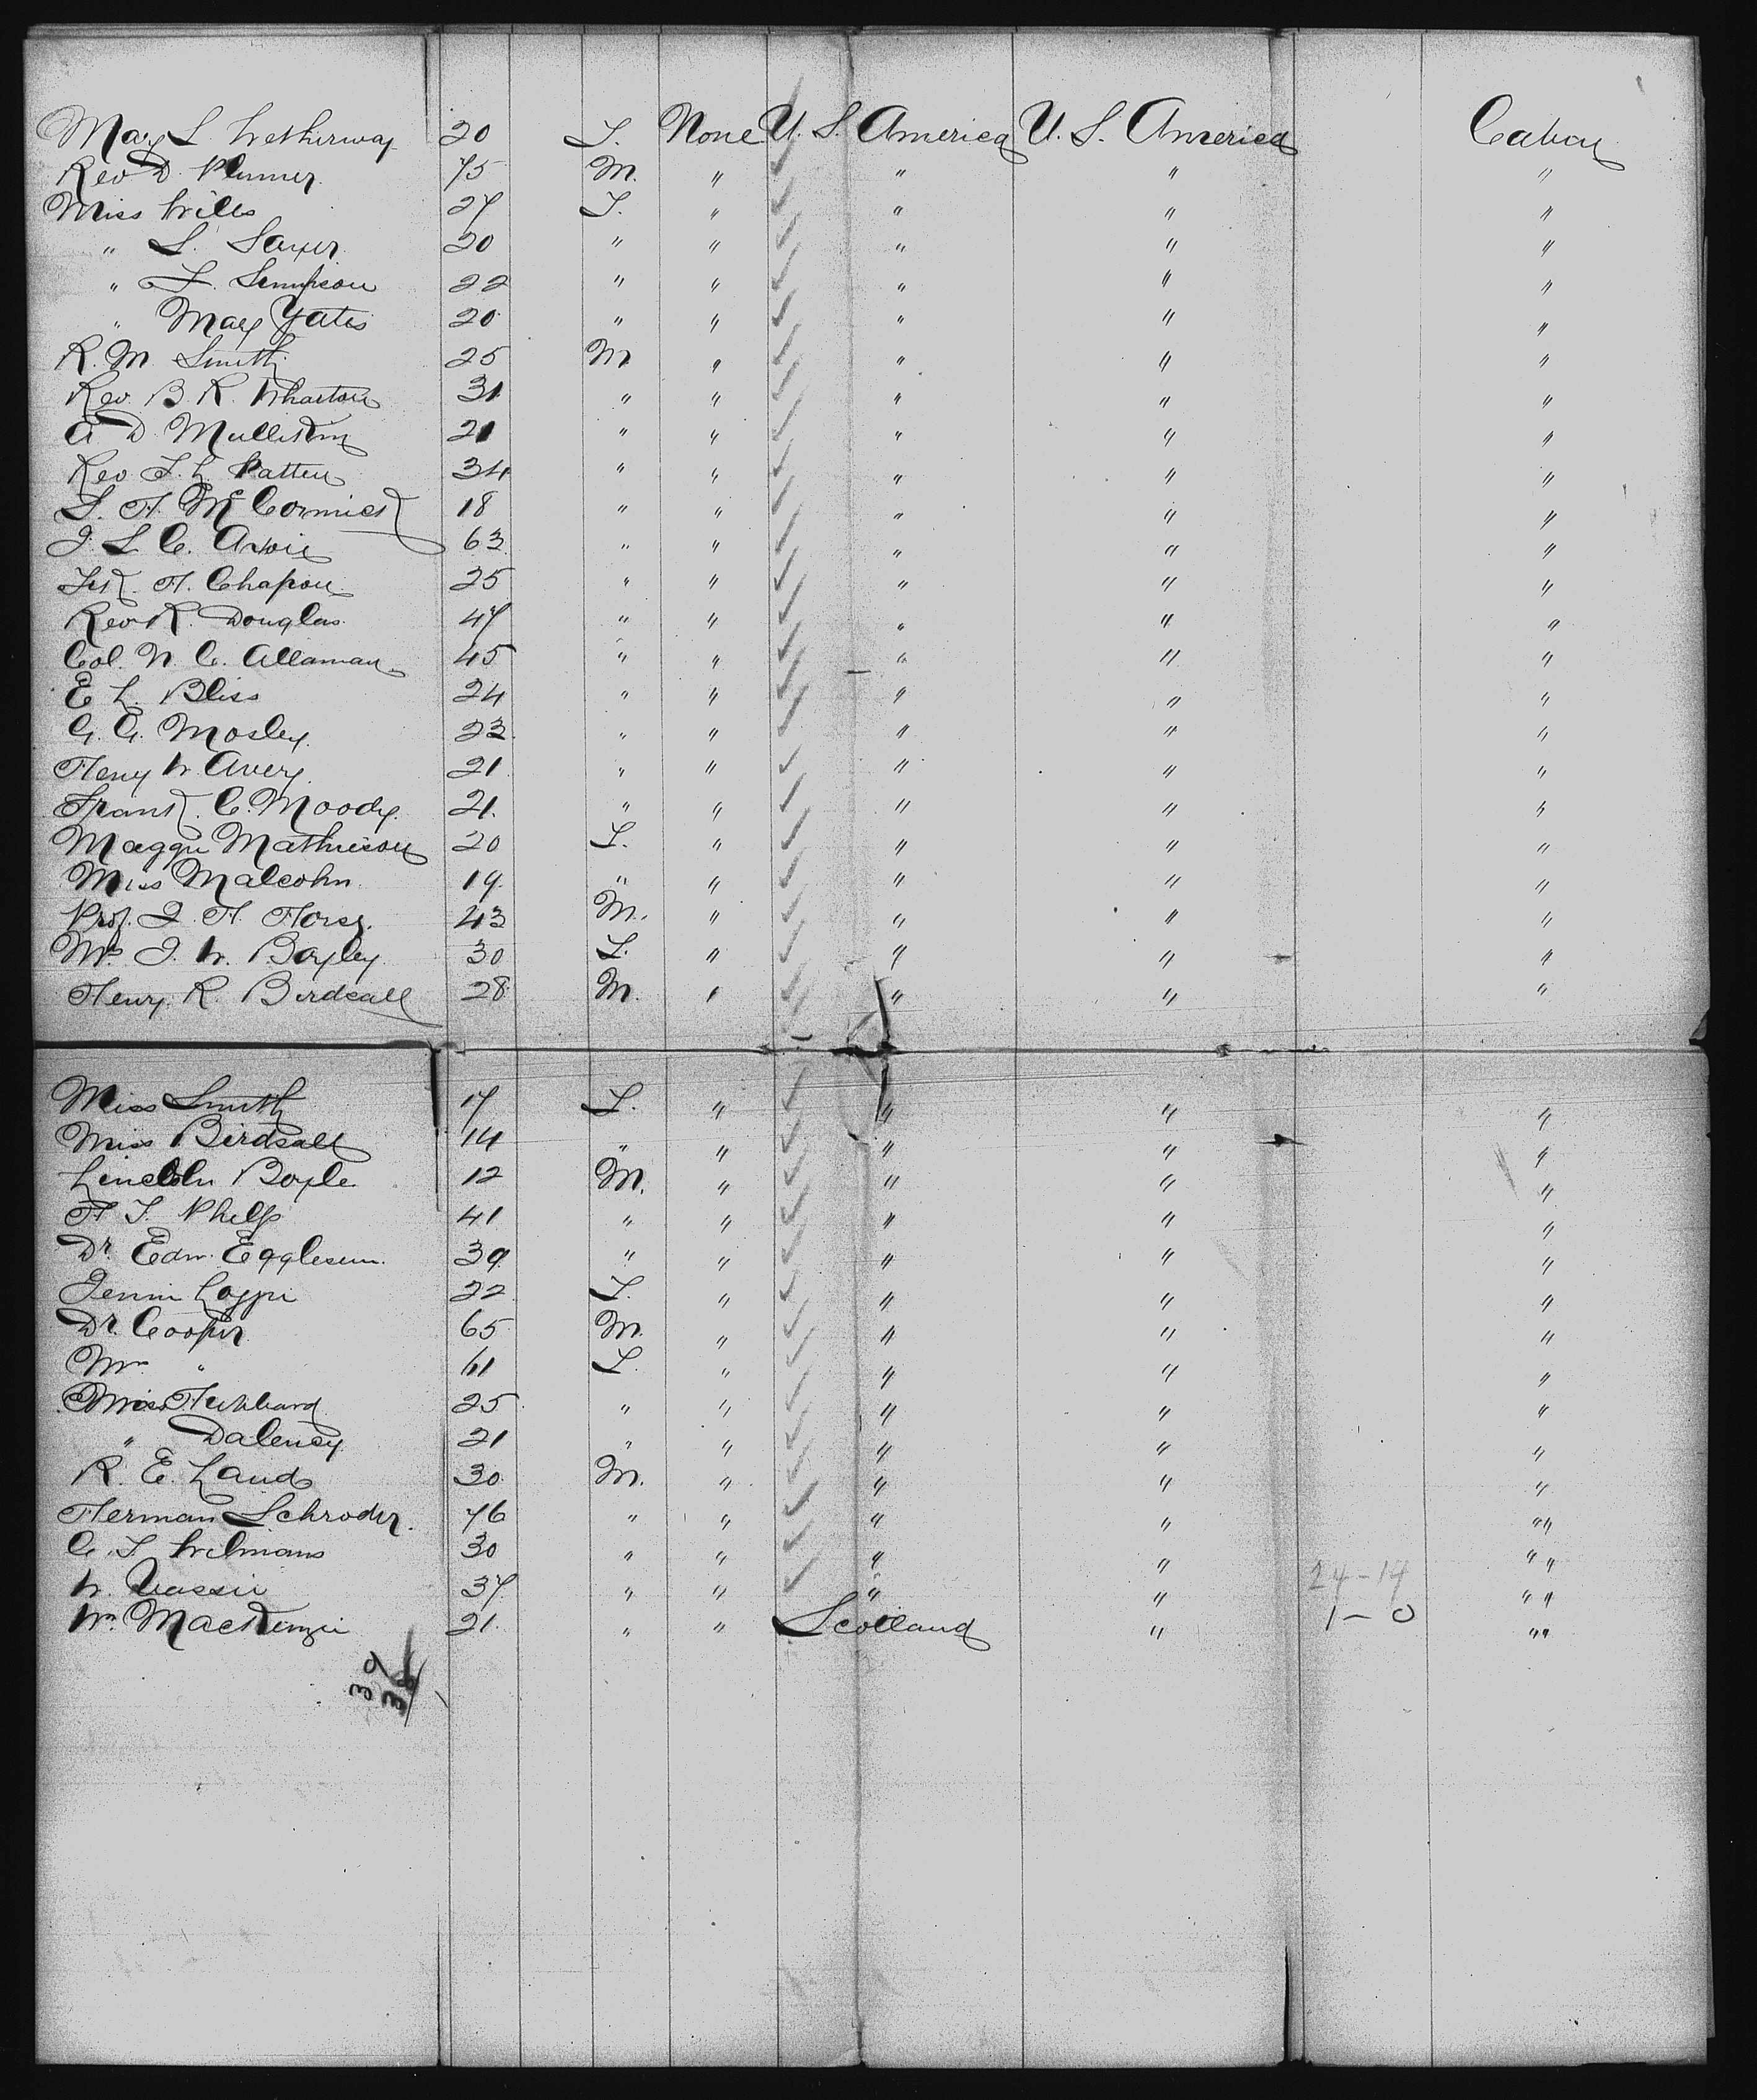 Mary L. Wetherway 20 F. None U. S. America U. S. America Cabin
Rev D. Plumer 75 M. " " " "
Miss Wills 27 F. " " " "
" S. Sawyer 20 " " " " "
" F. Simpson 22 " " " " "
" Mary Yates 20 " " " " "
R. M. Smith 25 M " " " "
Rev. B. R. Wharton 31 " " " " "
A D. 21 " " " " "
Rev F. L. Patten 34 " " " " "
S. H. McCormick 18 " " " " "
J. L. C. 63 " " " " "
H. Chapon 25 " " " " "
Rev R. Douglas 47 " " " " "
Col. N. C. Allaman 45 " " " " "
E L. Bliss 24 " " " " "
G. G. Mosley 23 " " " " "
Heny W. Avery 21 " " " " "
Frank. C. Moody. 21. " " " " "
Maggie Mathieson 20 F. " " " "
Miss Malcohn 19. " " " " "
Prof. J. H. 43 M. " " " "
Mrs J. W. Bayley 30 F. " " " "
Henry. R. Birdsall 28 M. " " " "
Miss Smith 17 F. " " " "
Miss Birdsall 14 " " " " "
Lincoln Boyle 12 M. " " " "
H F. Phelps 41 " " " " "
Dr. Edw. Egglesem. 39 " " " " "
Jennie 22 F. " " " "
Dr. Cooper 65 M. " " " "
Mrs " 61 F. " " " "
Miss Hubbard 25 " " " " "
" Dalency 21 " " " " "
R. E. Lands 30 M. " " " "
Herman Schroder. 76 " " " " ""
C. F. Wilmans 30 " " " " ""
W. Vassie 37 " " " " 24-14 ""
Wm. MacKenzie 21. " " Scotland " 1-0 ""
39
38